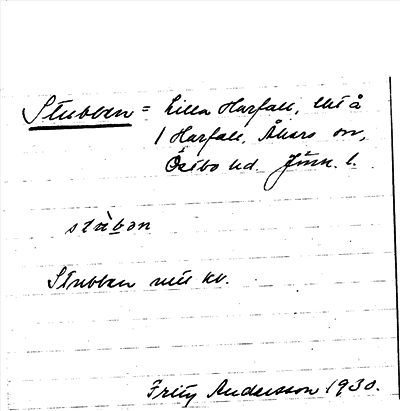 Stubben = Lilla Harfall, Utså
1 Harfall, Åkers sn,
Östbo hd Jönk. l.
stùbən
Stubben utts kv.
Frity Andersson 1930.